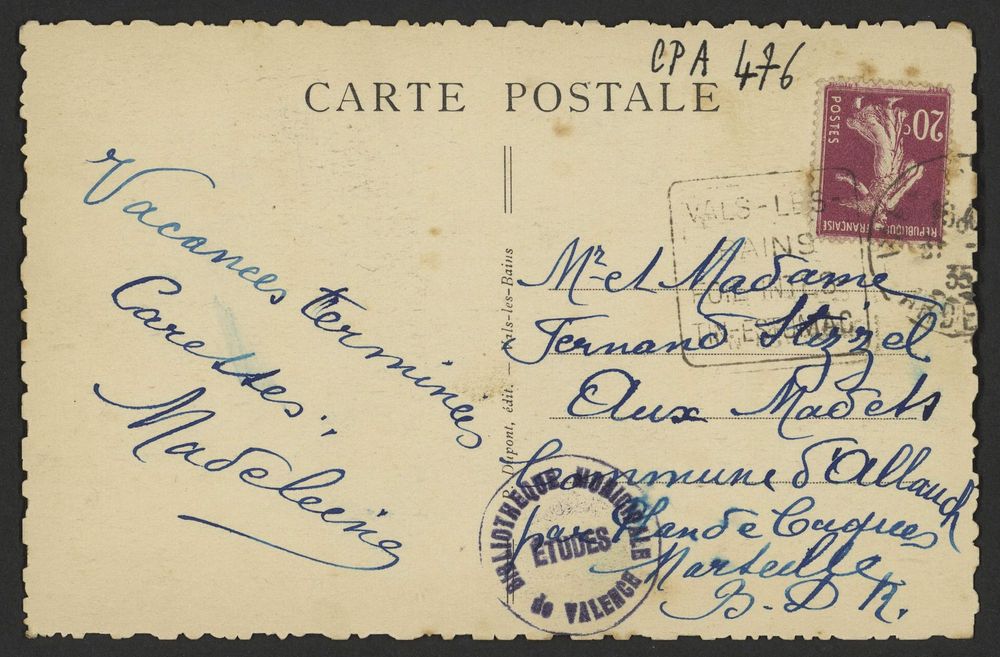 CPA 476
CARTE POSTALE
20c
POSTES
REPUBLIQUE FRANÇAISE
VALS-LES-
BAINS
35
Vacances terminées
Caresses.
Madeleine
Dupont, édit. — Vals-les-Bains
Mr et Madame
Fernand Stizzel
Aux Madets
Commune d'Allauch
par Plan de Cuques
Marseille
B. D. R.
BIBLIOTHEQUE MUNICIPALE
ETUDES
DE VALENCE